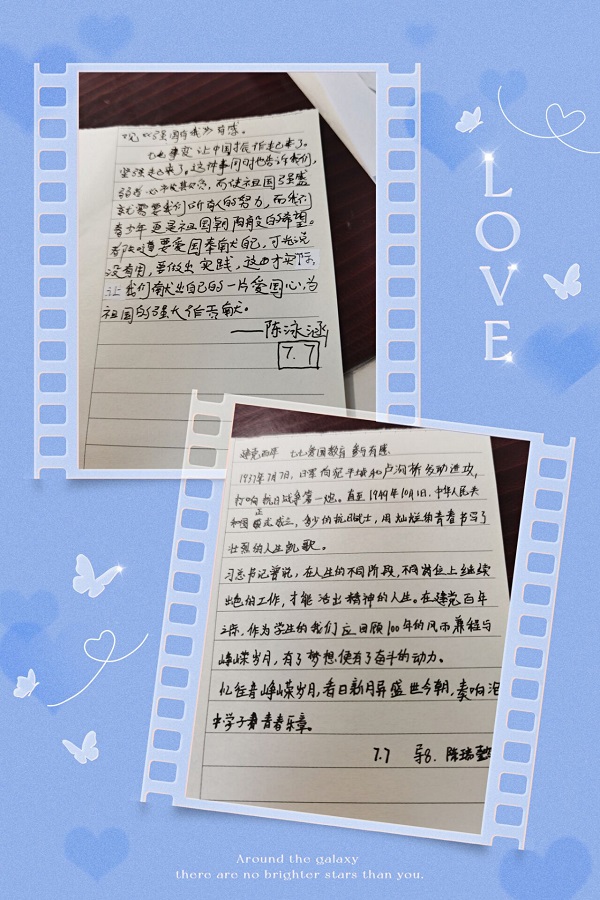 LOVE
观《强国有我》有感。
七七事变让中国振作起来了。
坚强起来了。这件事同时也告诉我们,
弱者必
而使祖国强盛
就需要我们所有人的努力,而我们
青少年更是祖国朝向般的希望。
都知道要爱国奉献自己,可光说
没有用,要做出实践,这由才实际
让我们献出自己的一片爱国心,为
祖国的强大作贡献。
——陈泳涵
7.7
建党百年 七七爱国教育 有感
1937年7月7日,日军向宛平城和卢沟桥发动进攻,
打响抗日战争第一炮。直至1949年10月1日,中华人民共
和国正式成立,多少的抗日战士,用灿烂的青春书写了
壮烈的人生凯歌。
习总书记曾说,在人生的不同阶段,不同岗位上继续
出色的工作,才能活出精神的人生。在建党百年
之际,作为学生的我们应回顾100年的风雨兼程与
峥嵘岁月,有了梦想,便有了奋斗的动力。
忆往昔峥嵘岁月,看日新月异盛世今朝,奏响
中学子青春乐章。
7.7 导8. 陈瑞
Around the galaxy
there are no brighter stars than you.